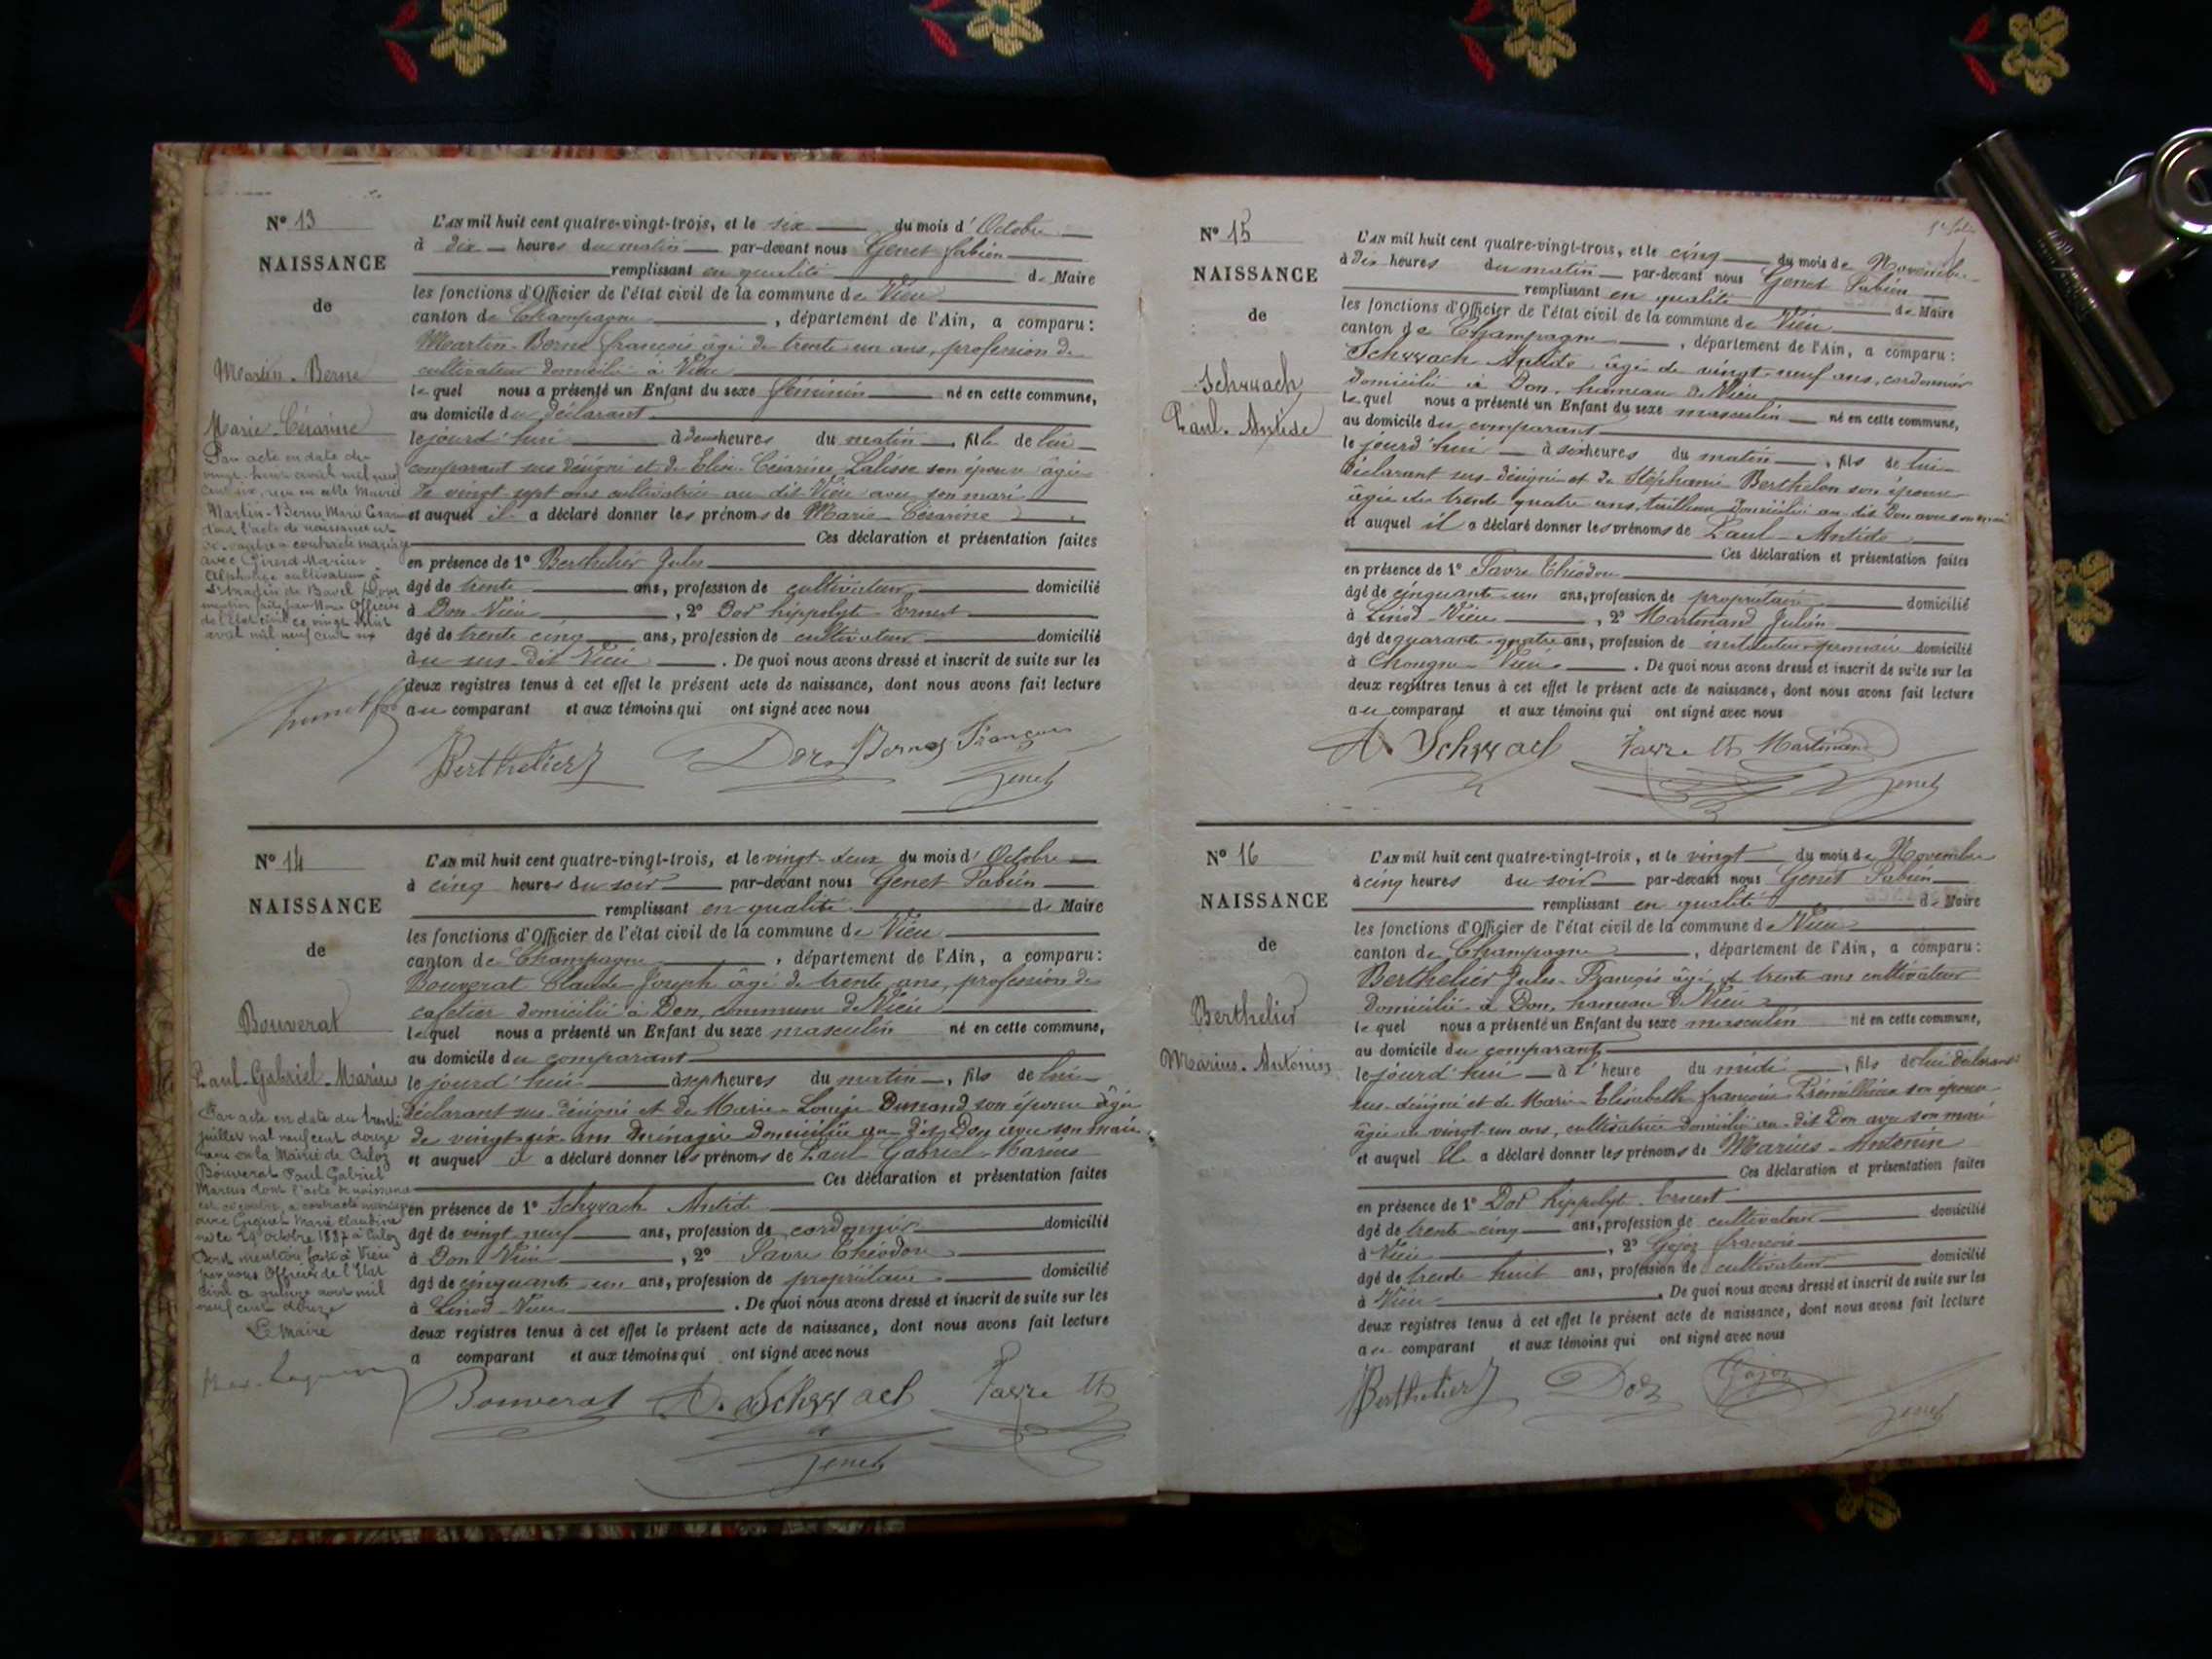 N° 13
NAISSANCE
de
Martin-Berne
Marie-Césarine
Par acte en date du
vingt-huit avril mil neuf
cent six, reçu en cette Mairie
Martin-Berne Marie Césarine
dont l'acte de naissance est
ci-contre a contracté mariage
avec Girerd Marius
Alphonse cultivateur à
St Martin de Bavel Dont
mention faite par Nous Officier
de l'Etat civil ce vingt huit
avril mil neuf cent six
L'AN mil huit cent quatre-vingt-trois, et le six du mois d'Octobre
à dix heures du matin par-devant nous Genet Fabien
remplissant en qualité de Maire
les fonctions d'Officier de l'état civil de la commune de Vieu
canton de Champagne, département de l'Ain, a comparu:
Martin-Berne françois âgé de trente un ans, profession de
cultivateur domicilié à Vieu
lequel nous a présenté un Enfant du sexe féminin né en cette commune,
au domicile du déclarant
le jourd'hui à deux heures du matin, fille de lui
comparant sus désigné et de Elise Césarine Lalisse son épouse âgée
de vingt sept ans cultivatrice au dit Vieu avec son mari
et auquel il a déclaré donner les prénoms de Marie-Césarine
Ces déclaration et présentation faites
en présence de 1° Berthelier Jules
âgé de trente ans, profession de cultivateur domicilié
à Don-Vieu, 2° Dor hippolyte-Ernest
âgé de trente cinq ans, profession de cultivateur domicilié
au sus-dit Vieu. De quoi nous avons dressé et inscrit de suite sur les
deux registres tenus à cet effet le présent acte de naissance, dont nous avons fait lecture
au comparant et aux témoins qui ont signé avec nous
Berthelier J Dor Berne François
Genet
N° 14
NAISSANCE
de
Bouverat
Paul-Gabriel-Marius
Par acte en date du trente
juillet mil neuf cent douze
la Mairie de Culoz
Bouverat Paul Gabriel
Marius dont l'acte de naissance
est ci-contre, a contracté mariage
avec Guguet Marie Claudine
née le 29 octobre 1887 à Culoz
Dont mention faite à Vieu
par nous Officier de l'Etat
civil ce quinze août mil
neuf cent douze
Le Maire
L'AN mil huit cent quatre-vingt-trois, et le vingt-deux du mois d'Octobre
à cinq heures du soir par-devant nous Genet Fabien
remplissant en qualité de Maire
les fonctions d'Officier de l'état civil de la commune de Vieu
canton de Champagne, département de l'Ain, a comparu:
Bouverat Claude-Joseph âgé de trente ans, profession de
cafetier domicilié à Don, commune de Vieu
lequel nous a présenté un Enfant du sexe masculin né en cette commune,
au domicile du comparant
le jourd'hui à sept heures du matin, fils de lui
déclarant sus-désigné et de Marie-Louise Dunand son épouse âgée
de vingt-six ans ménagère domiciliée au dit Don avec son mari
et auquel il a déclaré donner les prénoms de Paul-Gabriel-Marius
Ces déclaration et présentation faites
en présence de 1° Schwach Antide
âgé de vingt neuf ans, profession de cordonnier domicilié
à Don-Vieu, 2° Favre Théodore
âgé de cinquante un ans, profession de propriétaire domicilié
à Linod-Vieu. De quoi nous avons dressé et inscrit de suite sur les
deux registres tenus à cet effet le présent acte de naissance, dont nous avons fait lecture
a comparant et aux témoins qui ont signé avec nous
Bouverat A. Schwach Favre Th
Genet
N° 15
NAISSANCE
de
Schwach
Paul-Antide
L'AN mil huit cent quatre-vingt-trois, et le cinq du mois de Novembre
à dix heures du matin par-devant nous Genet Fabien
remplissant en qualité de Maire
les fonctions d'Officier de l'état civil de la commune de Vieu
canton de Champagne, département de l'Ain, a comparu:
Schwach Antide âgé de vingt-neuf ans, cordonnier
domicilié à Don, hameau de Vieu
lequel nous a présenté un Enfant du sexe masculin né en cette commune,
au domicile du comparant
le jourd'hui à six heures du matin, fils de lui
déclarant sus-désigné et de Stéphanie Berthelon son épouse
âgée de trente quatre ans, tailleuse domiciliée au dit Don avec son mari
et auquel il a déclaré donner les prénoms de Paul-Antide
Ces déclaration et présentation faites
en présence de 1° Favre Théodore
âgé de cinquante un ans, profession de propriétaire domicilié
à Linod-Vieu, 2° Martinand Julien
âgé de quarante-quatre ans, profession de instituteur primaire domicilié
à Chongne-Vieu. De quoi nous avons dressé et inscrit de suite sur les
deux registres tenus à cet effet le présent acte de naissance, dont nous avons fait lecture
au comparant et aux témoins qui ont signé avec nous
A. Schwach Favre Th Martinand
Genet
N° 16
NAISSANCE
de
Berthelier
Marius-Antonin
L'AN mil huit cent quatre-vingt-trois, et le vingt du mois de Novembre
à cinq heures du soir par-devant nous Genet Fabien
remplissant en qualité de Maire
les fonctions d'Officier de l'état civil de la commune de Vieu
canton de Champagne, département de l'Ain, a comparu:
Berthelier Jules-François âgé de trente ans cultivateur
domicilié à Don, hameau de Vieu
lequel nous a présenté un Enfant du sexe masculin né en cette commune,
au domicile du comparant
le jourd'hui à 1 heure du midi, fils de lui déclarant
sus-désigné et de Marie-Elisabeth françoise Prémillieu son épouse
âgée de vingt-un ans, cultivatrice domiciliée au-dit Don avec son mari
et auquel il a déclaré donner les prénoms de Marius-Antonin
Ces déclaration et présentation faites
en présence de 1° Dor hippolyte-Ernest
âgé de trente-cinq ans, profession de cultivateur domicilié
à Vieu, 2° Gojoz françois
âgé de trente huit ans, profession de cultivateur domicilié
à Vieu. De quoi nous avons dressé et inscrit de suite sur les
deux registres tenus à cet effet le présent acte de naissance, dont nous avons fait lecture
au comparant et aux témoins qui ont signé avec nous
Berthelier J Dor Gojoz
Genet